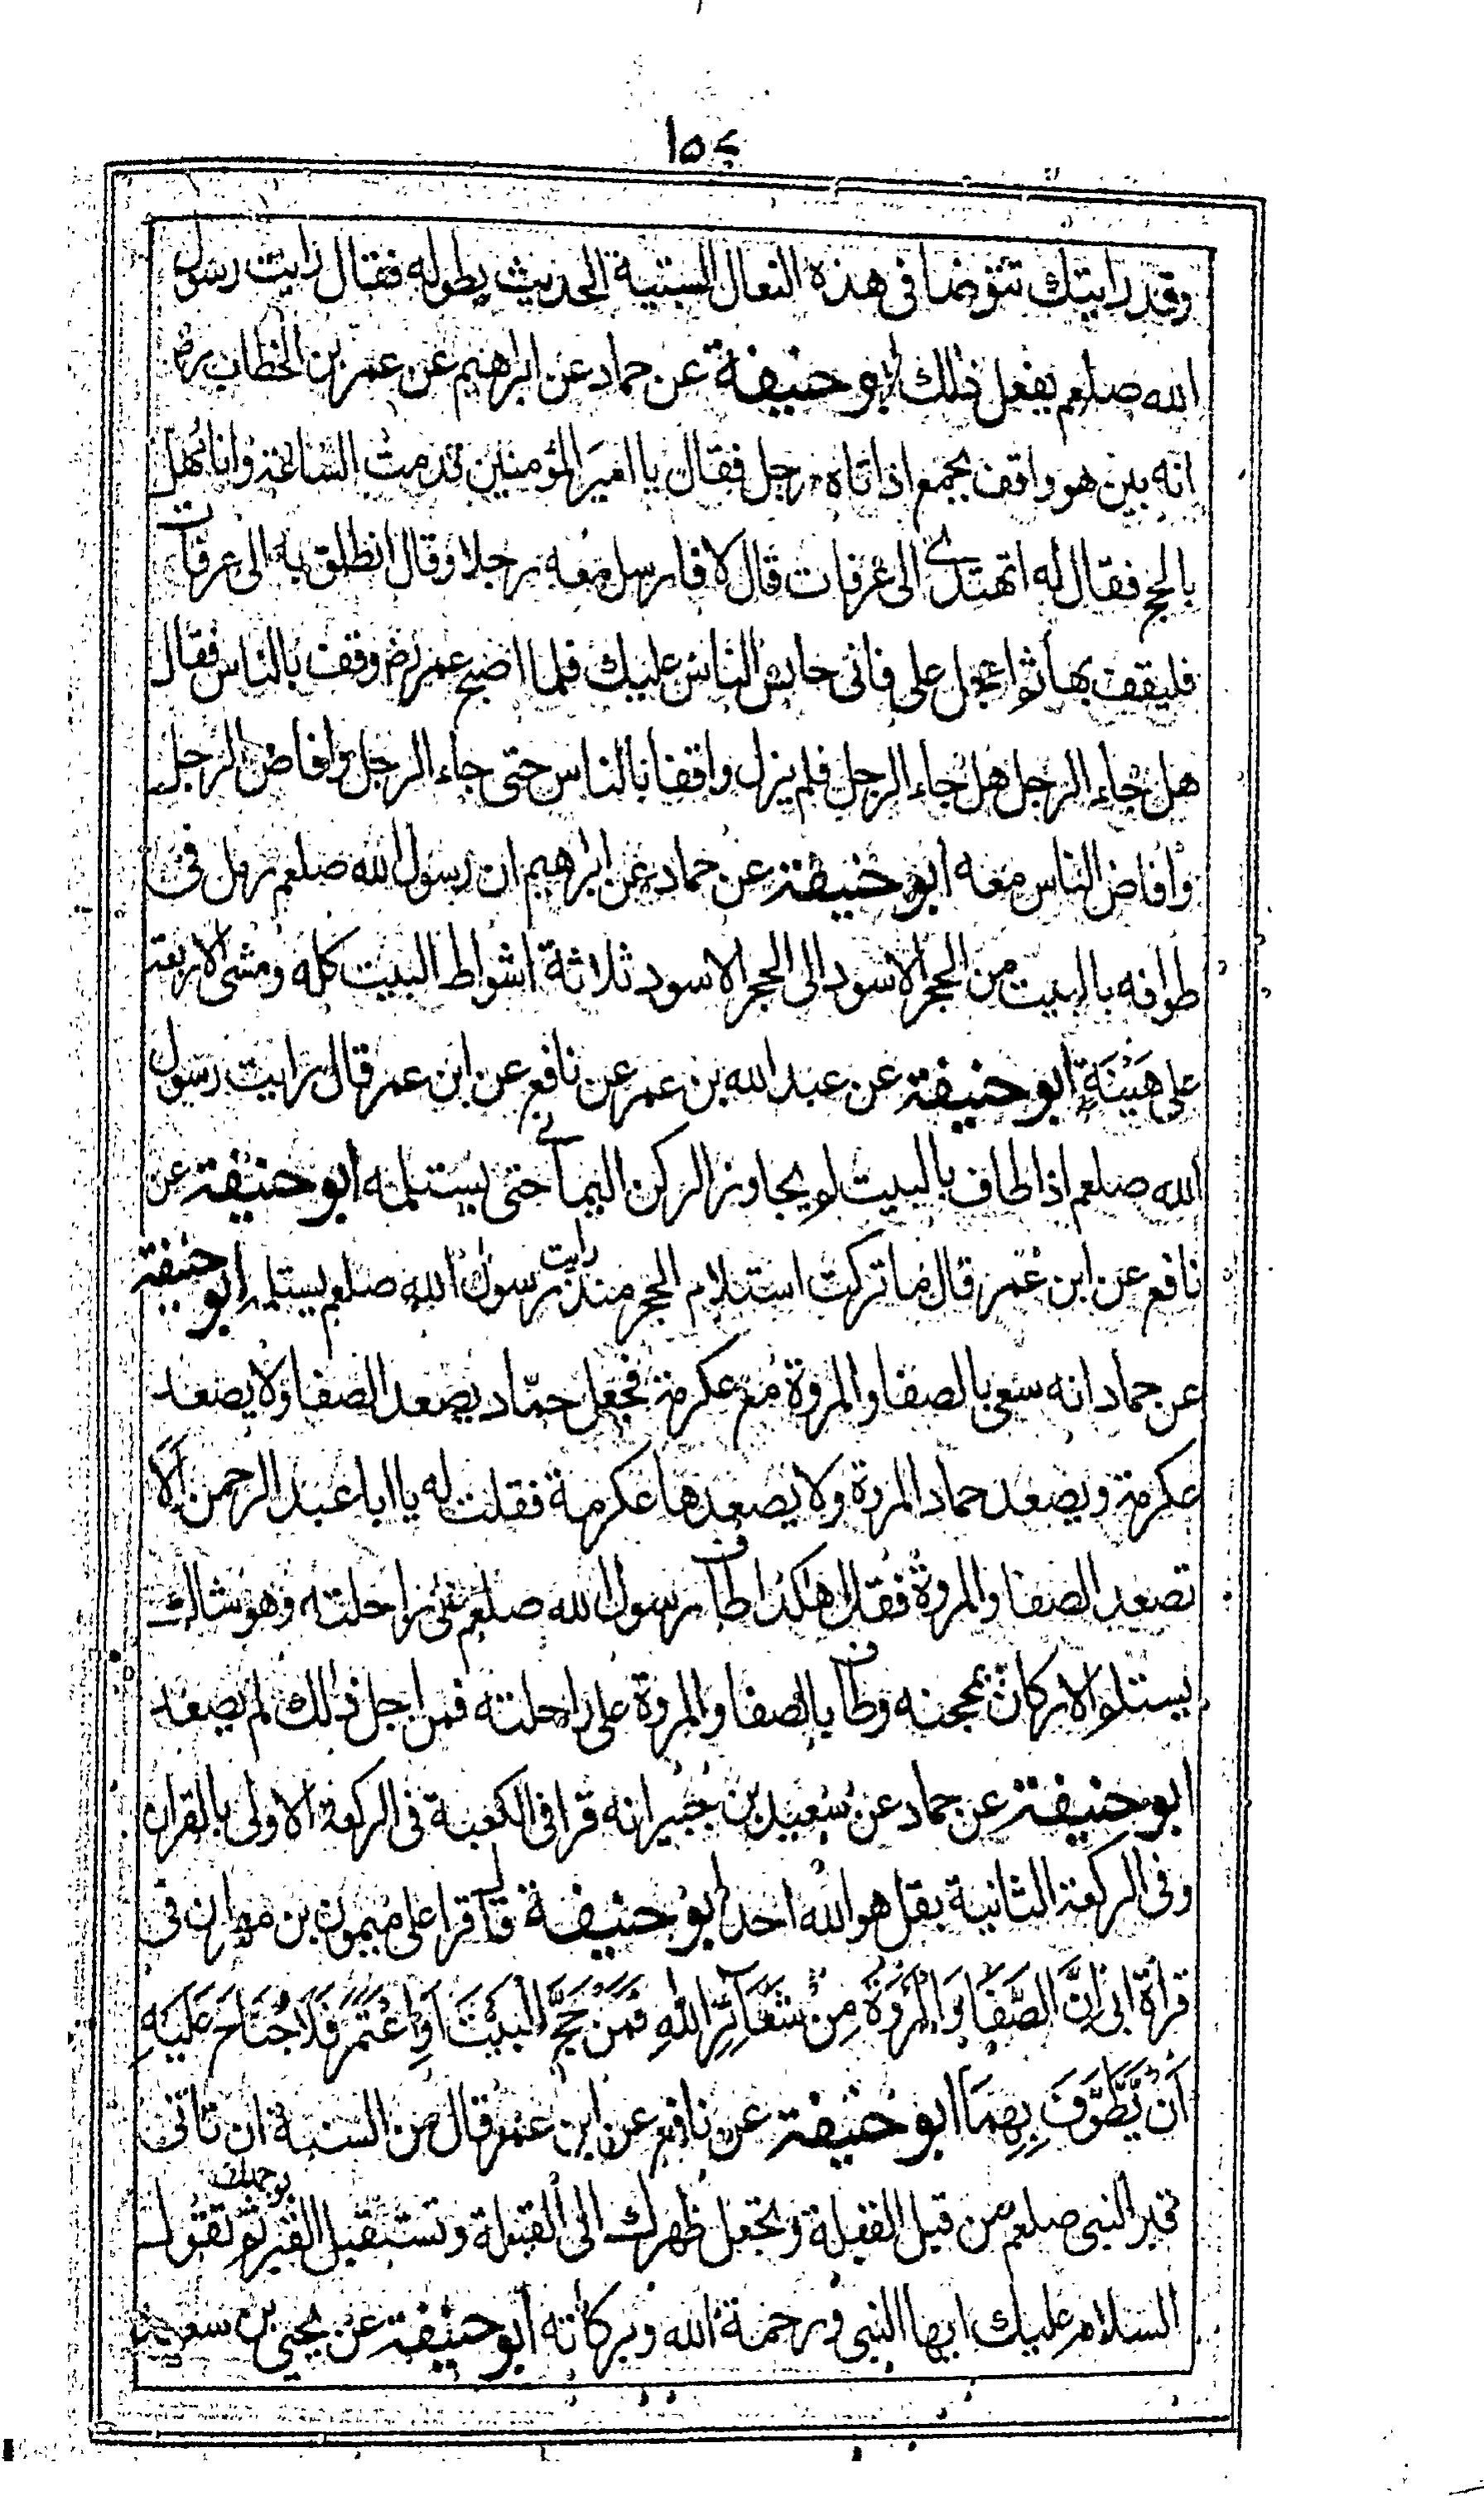 ١٥٤
وقد رايتك تتوضا فى هذه النعال السبتية الحديث بطوله فقال رايت رسول
الله صلعم يفعل ذلك ابو حنيفة عن حماد عن ابراهيم عن عمر بن الخطاب رض
انه بين هو واقف بجمع اذ اتاه رجل فقال يا امير المؤمنين قدمت الساعة وانا مهل
بالحج فقال له اتهتدى الى عرفات قال لا فارسل معه رجلا وقال انطلق به الى عرفات
فليقف بها ثم اعجل على فانى حابس الناس عليك فلما اصبح عمر رض وقف بالناس فقال
هل جاء الرجل هل جاء الرجل فلم يزل واقفا بالناس حتى جاء الرجل وافاض الرجل
وافاض الناس معه ابو حنيفة عن حماد عن ابراهيم ان رسول الله صلعم رمل فى
طوافه بالبيت من الحجر الاسود الى الحجر الاسود ثلاثة اشواط البيت كله ومشى الاربعة
على هَيْنَةٍ ابو حنيفة عن عبد الله بن عمر عن نافع عن ابن عمر قال رايت رسول
الله صلعم اذا طاف بالبيت لم يجاوز الركن اليمانى حتى يستلمه ابو حنيفة عن
نافع عن ابن عمر قال ما تركت استلام الحجر منذ رايت رسول الله صلعم يستلمه ابو حنيفة
عن حماد انه سعى بالصفا والمروة مع عكرمة فجعل حمّاد يصعد الصفا ولا يصعد
عكرمة ويصعد حماد المروة ولا يصعدها عكرمة فقلت له يا ابا عبد الرحمن الا
تصعد الصفا والمروة فقال هكذا طاف رسول الله صلعم على راحلته وهو شاك
يستلم الاركان بمحجنه وطاف بالصفا والمروة على راحلته فمن اجل ذلك لم يصعد
ابو حنيفة عن حماد عن سعيد بن جبير انه قرا فى الكعبة فى الركعة الاولى بالقران
وفى الركعة الثانية بقل هو الله احد ابو حنيفة قال قرا على ميمون بن مهران فى
قراة ابى اِنَّ الصَّفَا وَالْمَرْوَةَ مِنْ شَعَآئِرِ اللهِ فَمَنْ حَجَّ الْبَيْتَ اَوِ اعْتَمَرَ فَلَا جُنَاحَ عَلَيْهِ
اَنْ يَّطَّوَّفَ بِهِمَا ابو حنيفة عن نافع عن ابن عمر قال من السنة ان تاتى
قبر النبى صلعم من قبل القبلة وتجعل ظهرك الى القبلة وتستقبل القبر بوجهك ثم تقول
السلام عليك ايها النبى ورحمة الله وبركاته ابو حنيفة عن يحيى بن سعيد